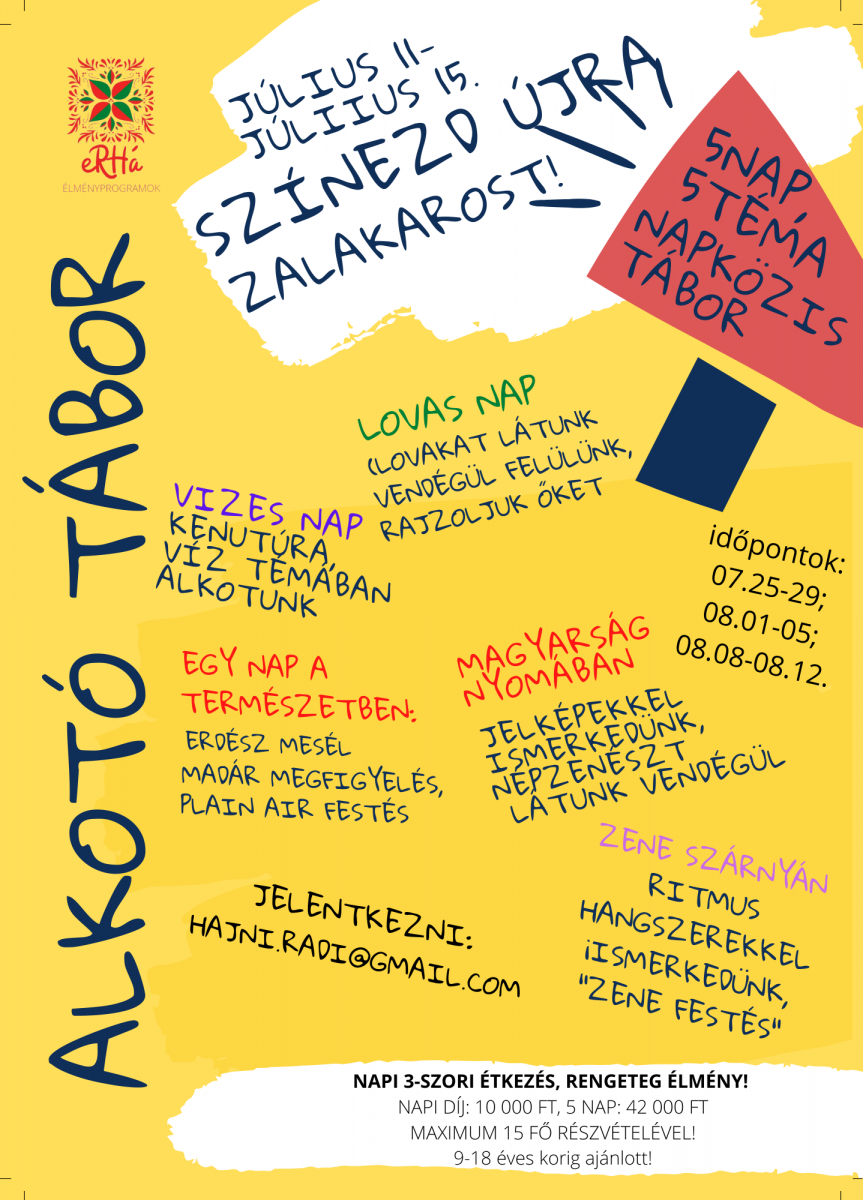 eRHá
ÉLMÉNYPROGRAMOK
JÚLIUS 11-
JÚLIIUS 15.
SZÍNEZD ÚJRA
ZALAKAROST!
5NAP,
5TÉMA
NAPKÖZIS
TÁBOR
ALKOTÓ TÁBOR
LOVAS NAP
(LOVAKAT LÁTUNK
VENDÉGÜL FELÜLÜNK,
RAJZOLJUK ŐKET
VIZES NAP
KENUTÚRA,
VÍZ TÉMÁBAN
ALKOTUNK
időpontok:
07.25-29;
08.01-05;
08.08-08.12.
EGY NAP A
TERMÉSZETBEN:
ERDÉSZ MESÉL
MADÁR MEGFIGYELÉS,
PLAIN AIR FESTÉS
MAGYARSÁG
NYOMÁBAN
JELKÉPEKKEL
ISMERKEDÜNK,
NÉPZENÉSZT
LÁTUNK VENDÉGÜL
ZENE SZÁRNYÁN
RITMUS
HANGSZEREKKEL
iISMERKEDÜNK,
"ZENE FESTÉS"
JELENTKEZNI:
HAJNI.RADI@GMAIL.COM
NAPI 3-SZORI ÉTKEZÉS, RENGETEG ÉLMÉNY!
NAPI DÍJ: 10 000 FT, 5 NAP: 42 000 FT
MAXIMUM 15 FŐ RÉSZVÉTELÉVEL!
9-18 éves korig ajánlott!